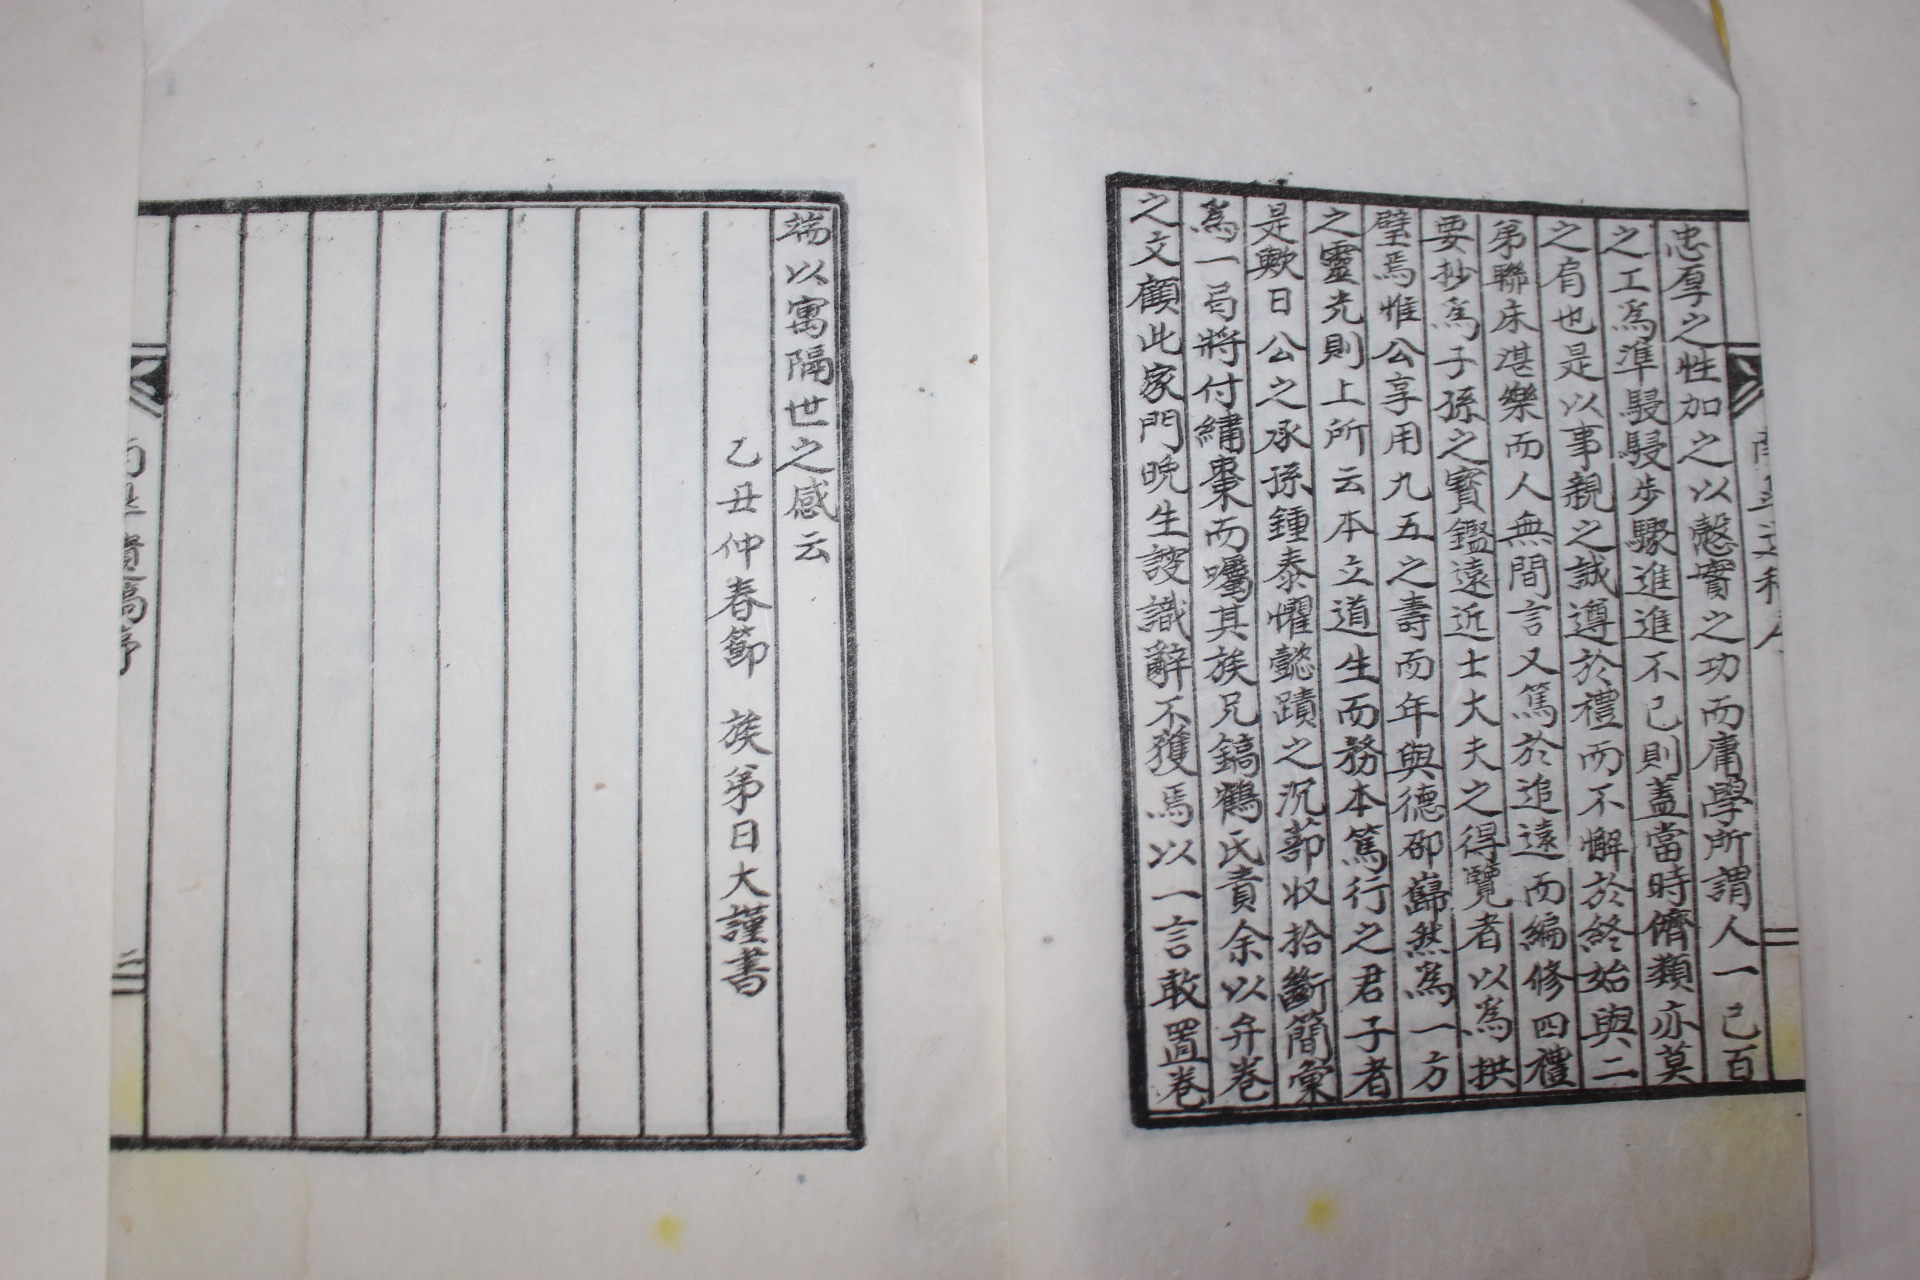 忠厚之性加之以慤實之功而庸學所謂人一己百
之工爲準駸駸步驟進進不已則蓋當時儕類亦莫
之肩也是以事親之誠遵於禮而不懈於終始與二
弟聯床湛樂而人無間言又篤於追遠而編修四禮
要抄爲子孫之寶鑑遠近士大夫之得覽者以爲拱
璧焉惟公享用九五之壽而年與德卲巋然爲一方
之靈光則上所云本立道生而務本篤行之君子者
是歟日公之承孫鍾泰懼懿蹟之沉莭收拾斷簡彙
爲一局將付繡棗而囑其族兄鎬鶴氏責余以弁卷
之文顧此家門晩生謏識辭不獲焉以一言敢置卷
端以寓隔世之感云
乙丑仲春節 族弟日大謹書
遺稿序
二